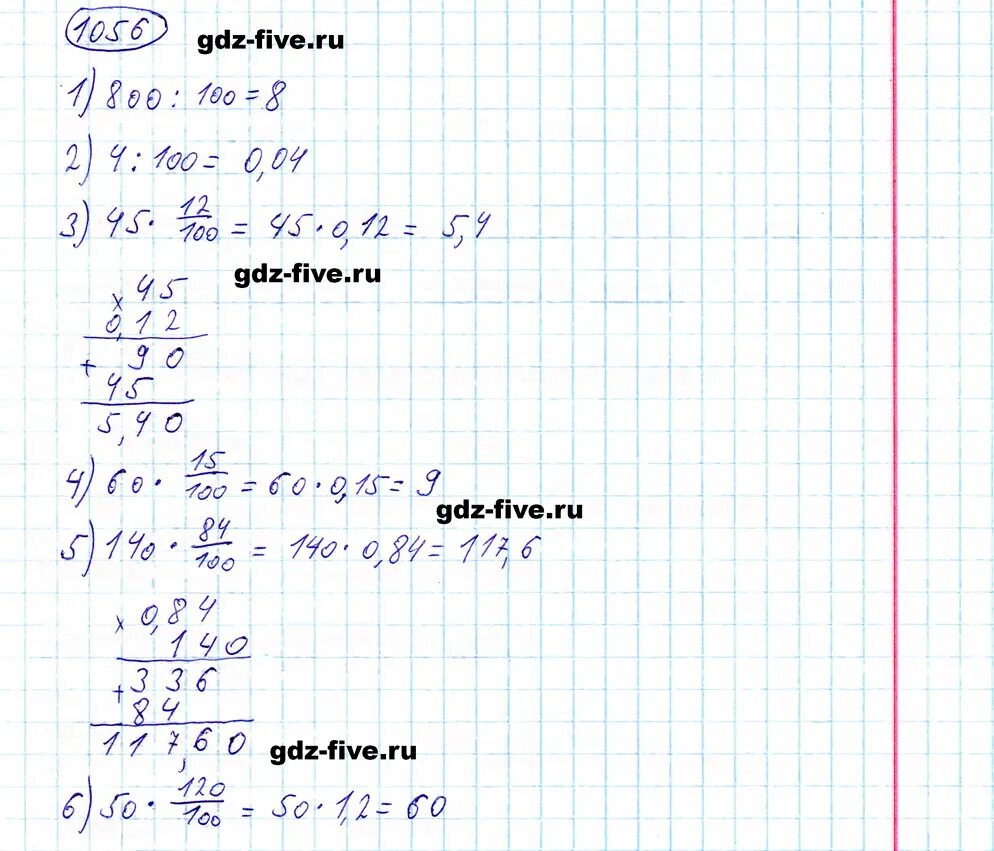 1056 gdz-five.ru
1) 800 : 100 = 8
2) 4 : 100 = 0,04
3) 45 · 12/100 = 45 · 0,12 = 5,4
gdz-five.ru
× 45
0,12
+ 90
45
5,40
4) 60 · 15/100 = 60 · 0,15 = 9
gdz-five.ru
5) 140 · 84/100 = 140 · 0,84 = 117,6
× 0,84
140
+ 336
84
117,60
gdz-five.ru
6) 50 · 120/100 = 50 · 1,2 = 60